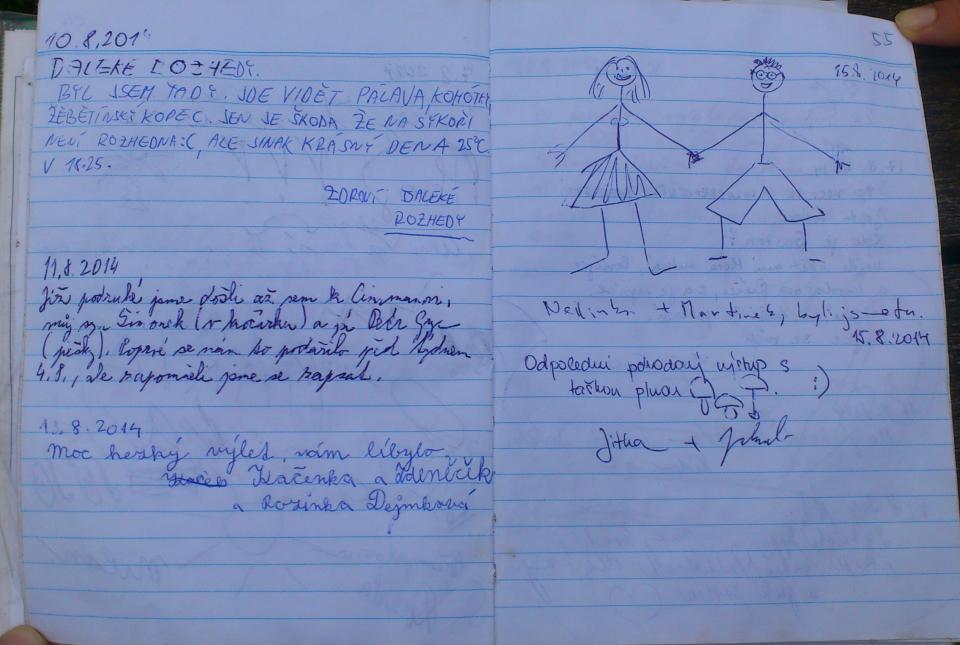 10.8.201
DALEKÉ ROZHEDY.
BYL JSEM TADY. JDE VIDĚT PÁLAVA, KOHOŮT
ŽEBĚTÍNSKÝ KOPEC. JEN JE ŠKODA ŽE NA SÝKOŘI
NENÍ ROZHEDNA:(, ALE JINAK KRÁSNÝ DEN A 25°C
V 18:25.
ZDRAVÍ DALEKÉ
ROZHEDY
11.8.2014
Již podruhé jsme došli až sem k Cinzmanovi,
můj syn Šimonek (v kočárku) a já Petr
(pěšky). Poprvé se nám to podařilo před týdnem
4.8., ale zapomněli jsme se zapsat.
13.8.2014
Moc hezký výlet, nám líbylo
Kačenka a Zdeněčik
a Rozinka Dejmková
55
15.8.2014
+ Martinek, byli jsme tu.
15.8.2014
Odpolední pohodový výstup s
taškou plnou . :)
Jitka +